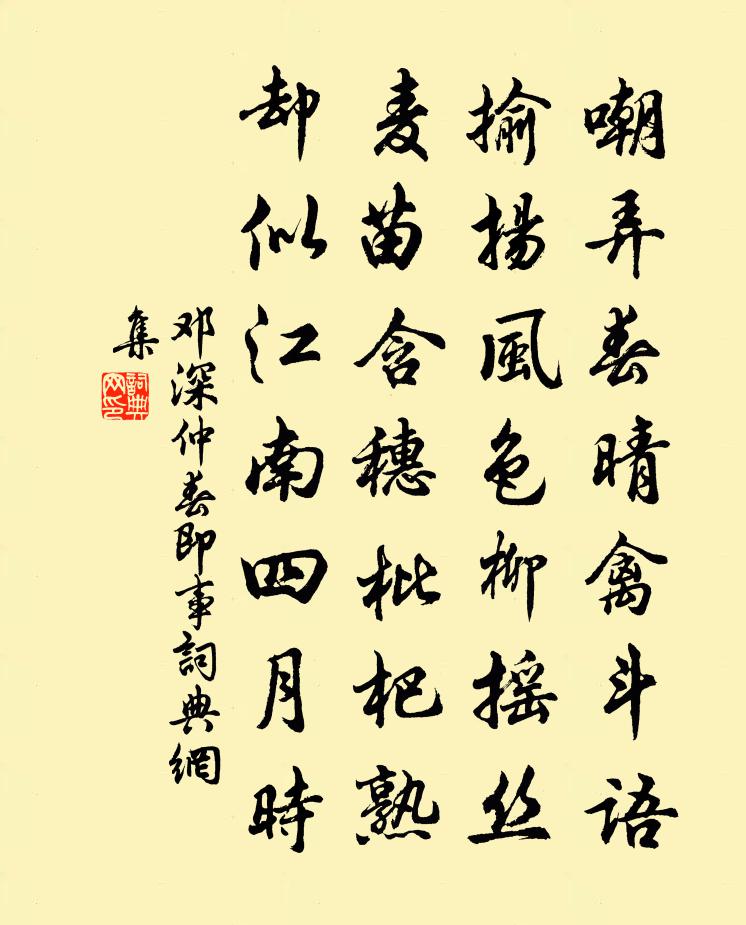 嘲弄春晴禽斗语
揄揚風色柳摇丝
麦苗含穗枇杷熟
却似江南四月時
邓深仲春即事詞典網
集
詞典
网印